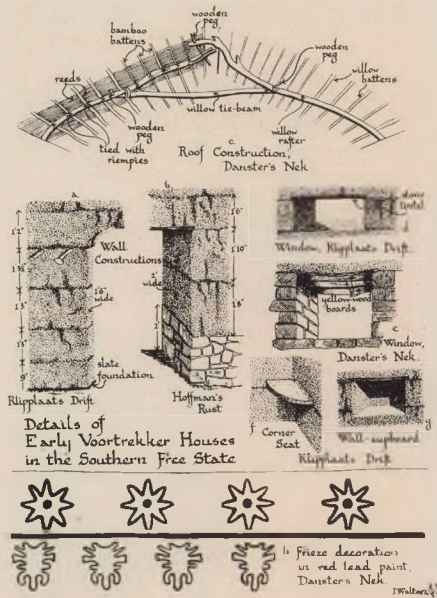 wooden
peg
bamboo
battens
wooden
peg
willow
battens
reeds
willow tie-beam
wooden
peg
tied with
riempies
willow
rafter
c
Roof Construction,
Danster's Nek
a
b
Wall
Constructions
1'2"
1'6"
wide
slate
foundation
9"
Klipplaats Drift
2'
wide
1'6"
1'10"
1'8"
Hoffman's
Rust
stone
lintel
d
Window, Klipplaats Drift.
yellow-wood
boards
e
Window,
Danster's Nek.
f Corner
Seat
g
Wall-cupboard
Klipplaats Drift
Details of
Early Voortrekker Houses
in the Southern Free State
h Frieze decoration
in red lead paint,
Danster's Nek.
J Walton